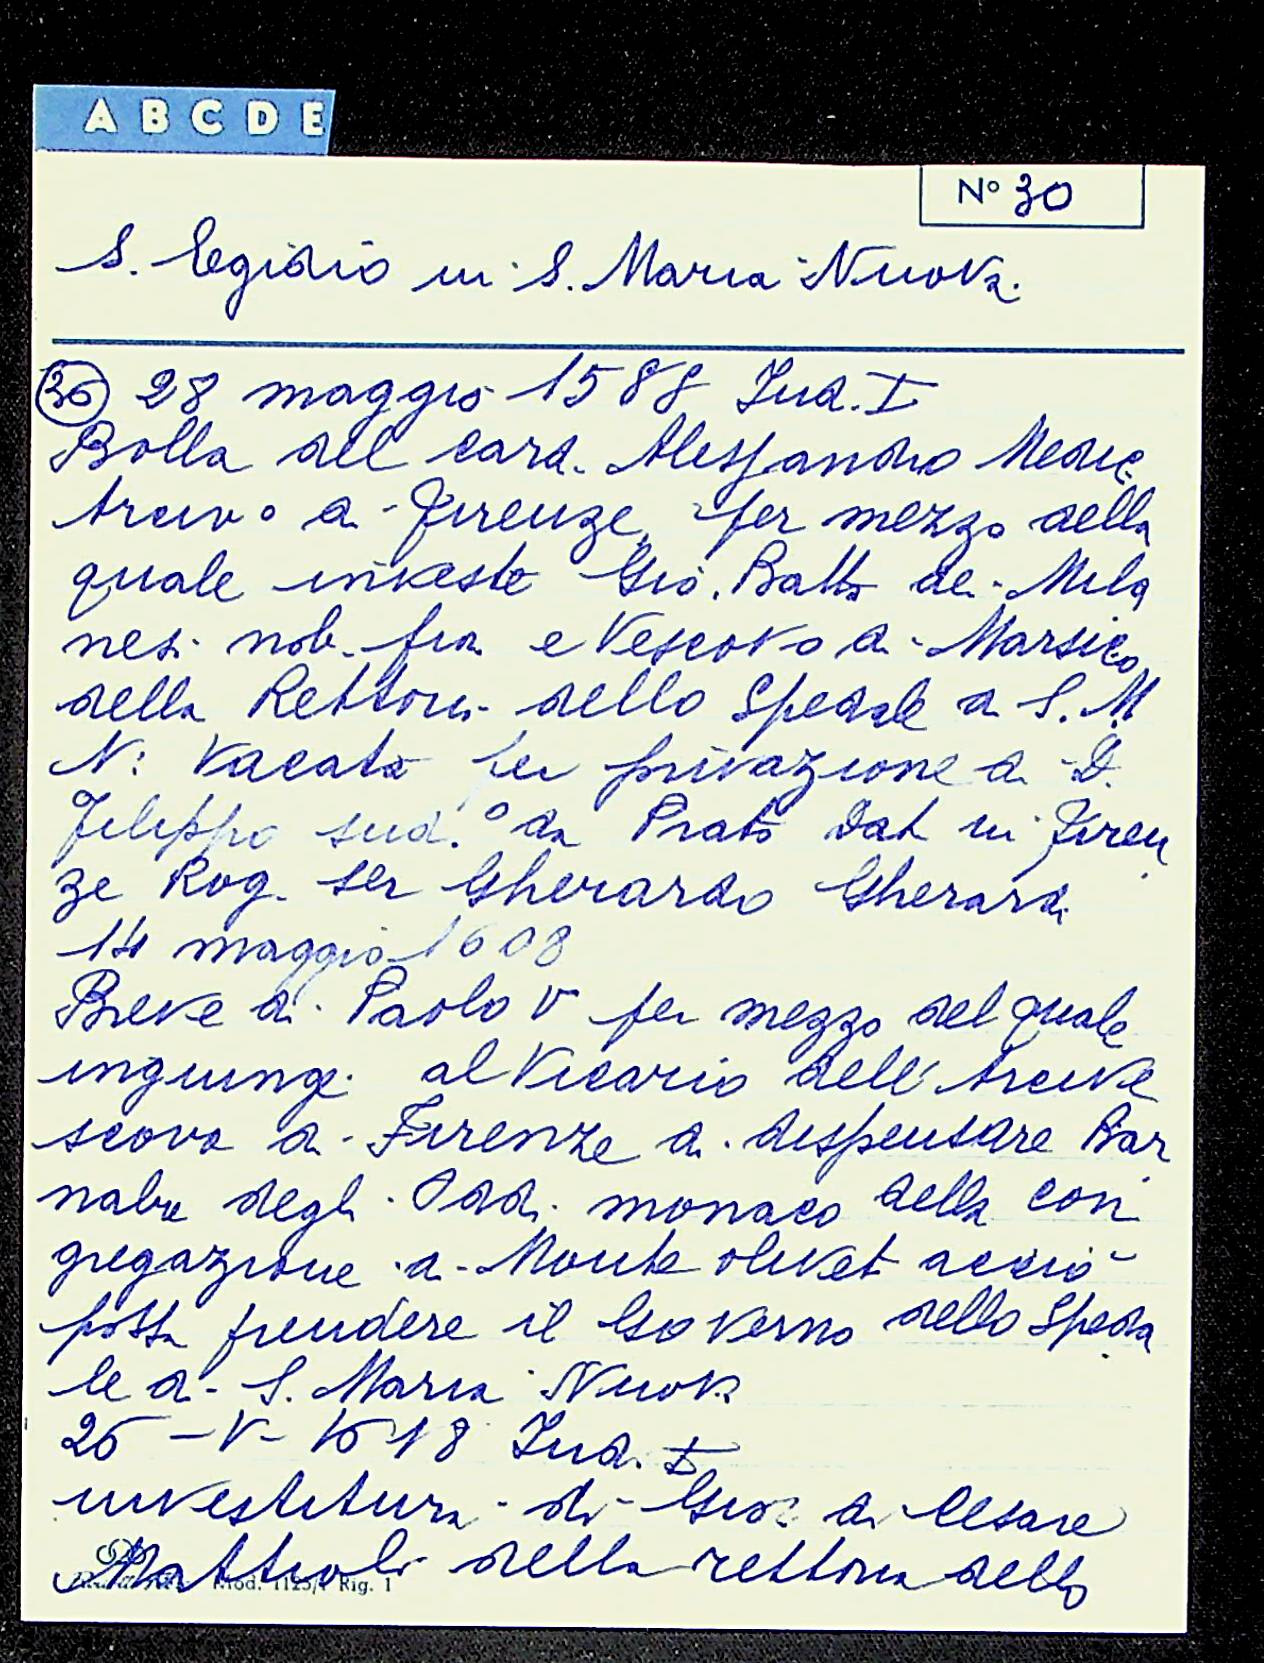 A B C D E
N° 30
S. Egidio in S. Maria Nuova.
30 28 maggio 1588 Ind. I
Bolla del card. Alessandro Medic
Arciv.o di Firenze, per mezzo della
quale investe Gio. Batta de' Mila
nesi nob. fio. e Vescovo di Marsico
della Rettori. dello Spedale di S. M
N: Vacata per privazione di D.
Filippo sud.o da Prato Dat in Firen
ze Rog. ser Gherardo Gherardi
14 maggio 1608
Breve di Paolo V per mezzo del quale
ingiunge al Vicario dell'Arcive
scovo di Firenze di dispensare Bar
naba degli Oddi monaco della con
gregazione di Monte oliveto acciò
possa prendere il Governo dello Speda
le di S. Maria Nuova
26 - V - 1618 Ind. I
investitura di Gio: di Cesare
Mattioli della rettoria dello
Mod. 1125/1 Rig. 1